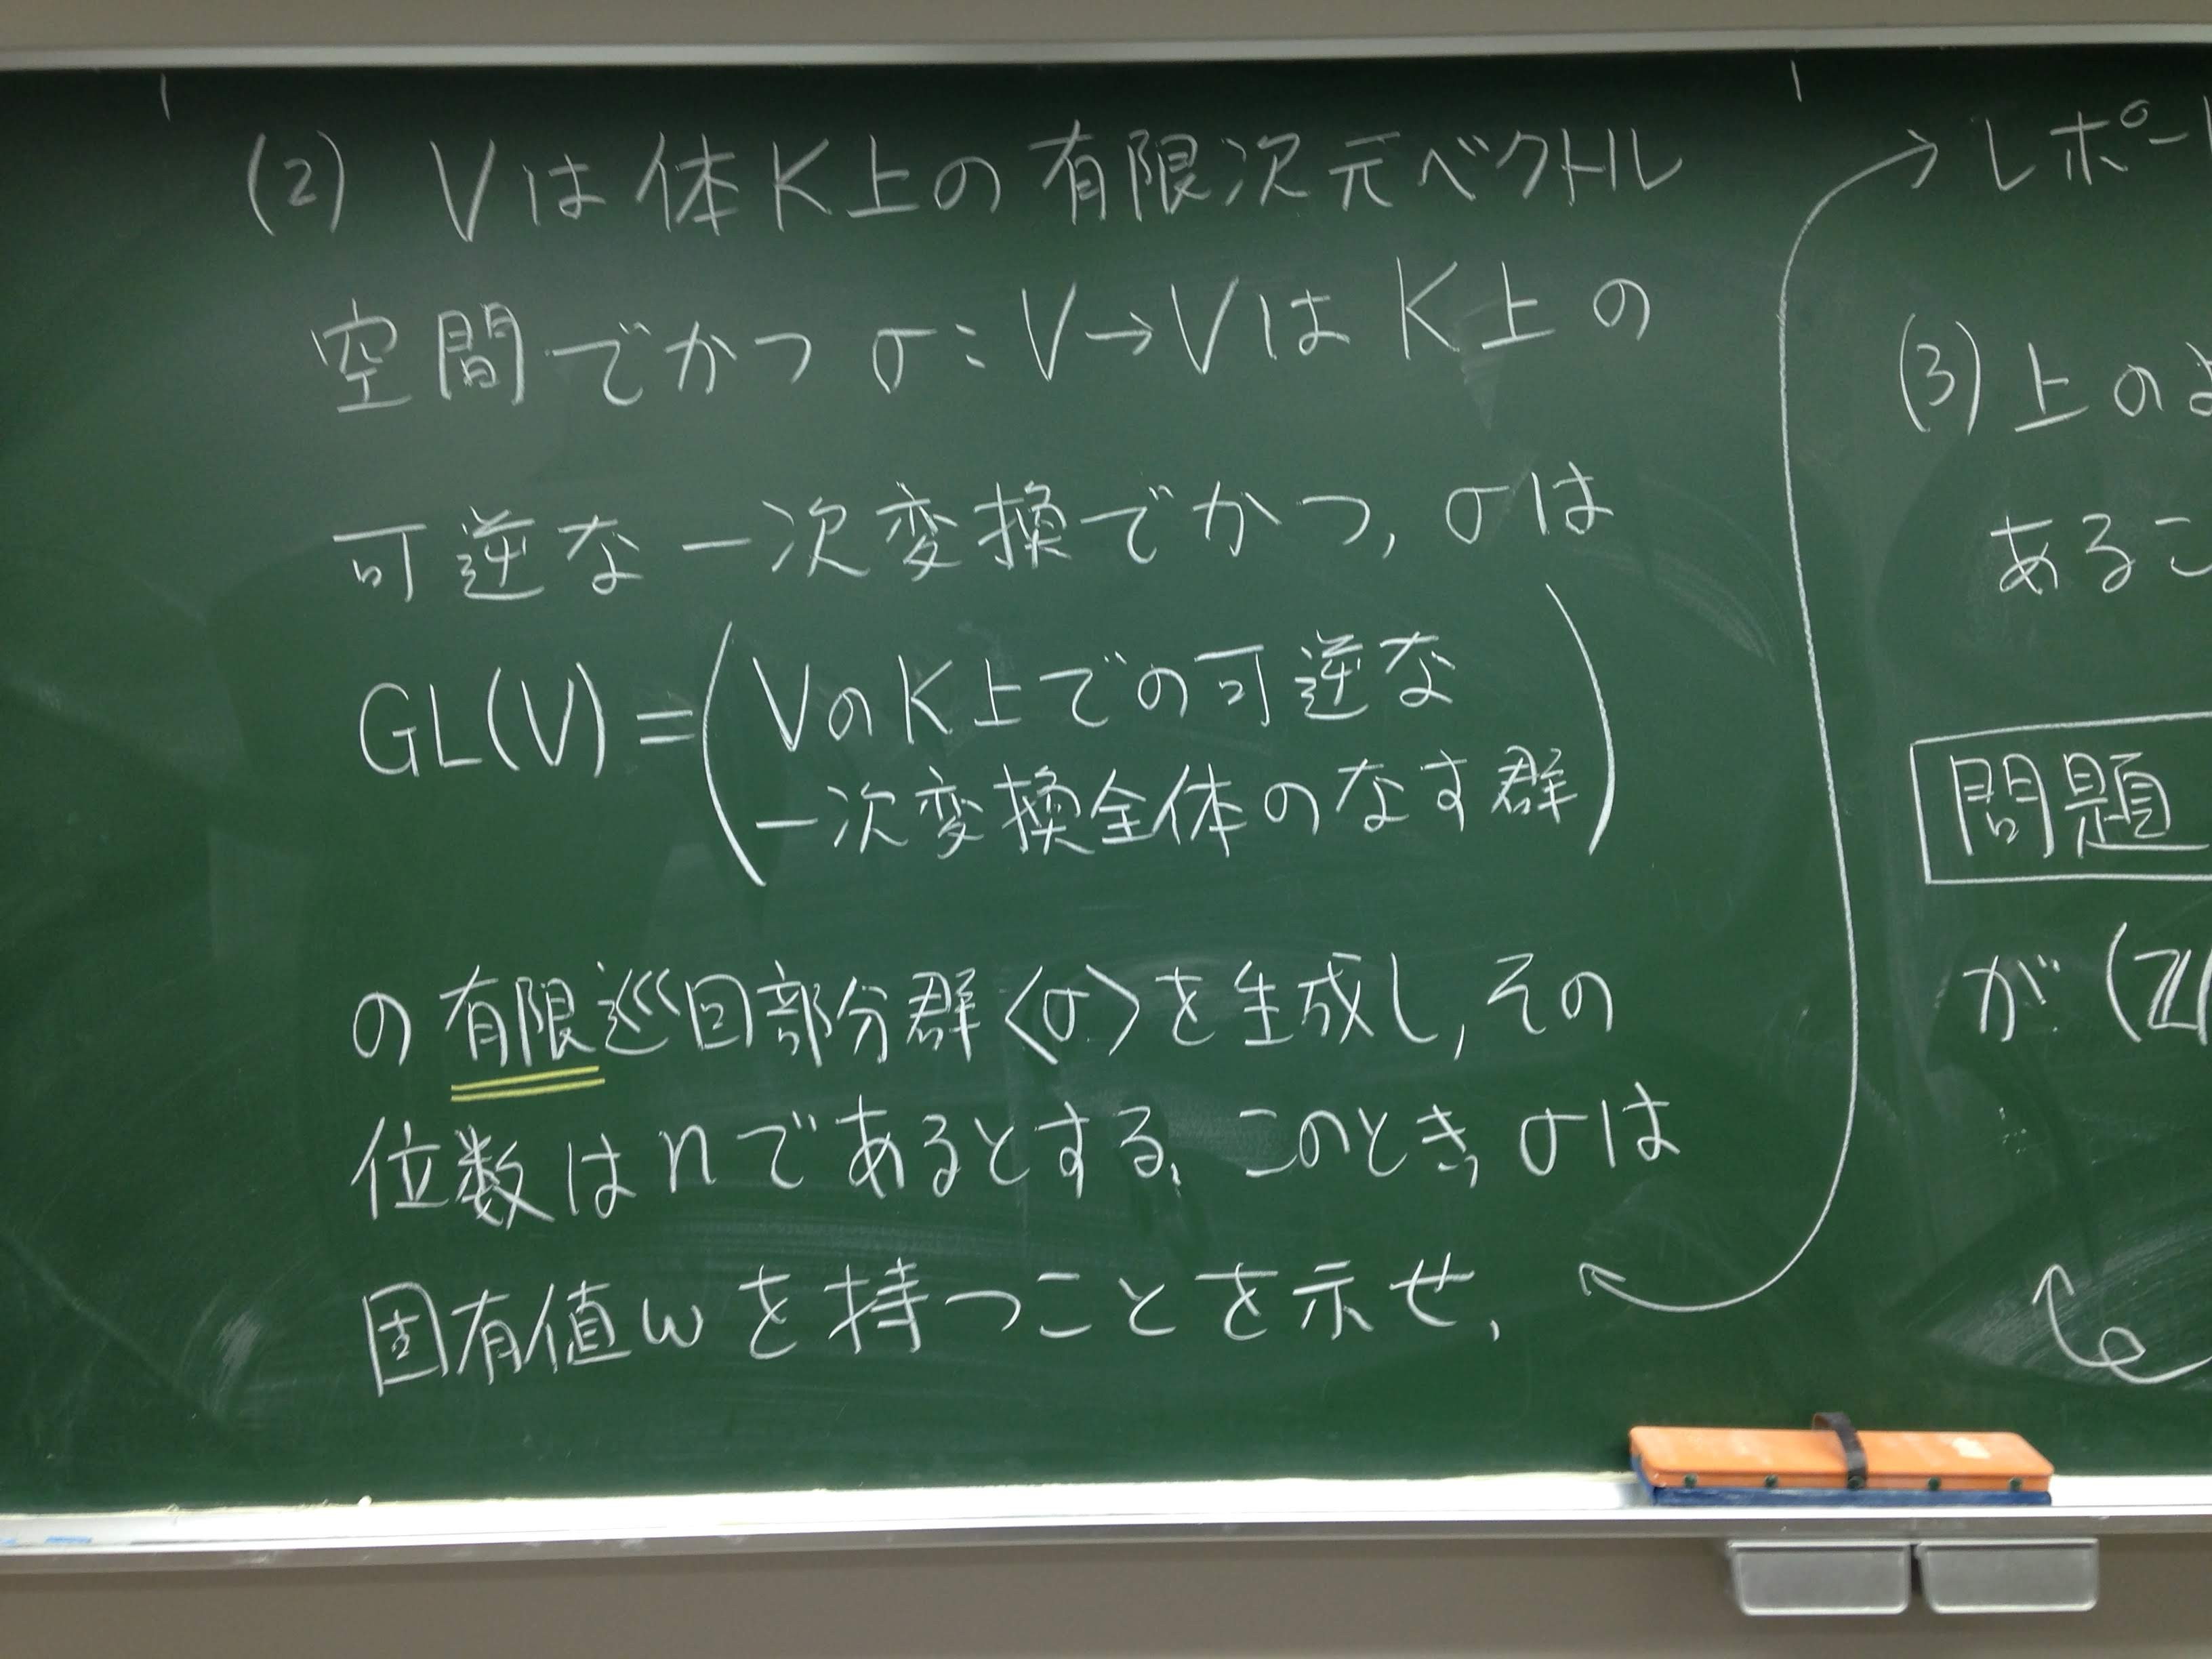 (2) Vは体K上の有限次元ベクトル
空間でかつ σ:V→VはK上の
可逆な一次変換でかつ, σは
GL(V)=(VのK上での可逆な
一次変換全体のなす群)
の有限巡回部分群<σ>を生成し, その
位数はnであるとする. このとき, σは
固有値ωを持つことを示せ.
→レポー
(3)上の
あるこ
問題
が(Z/